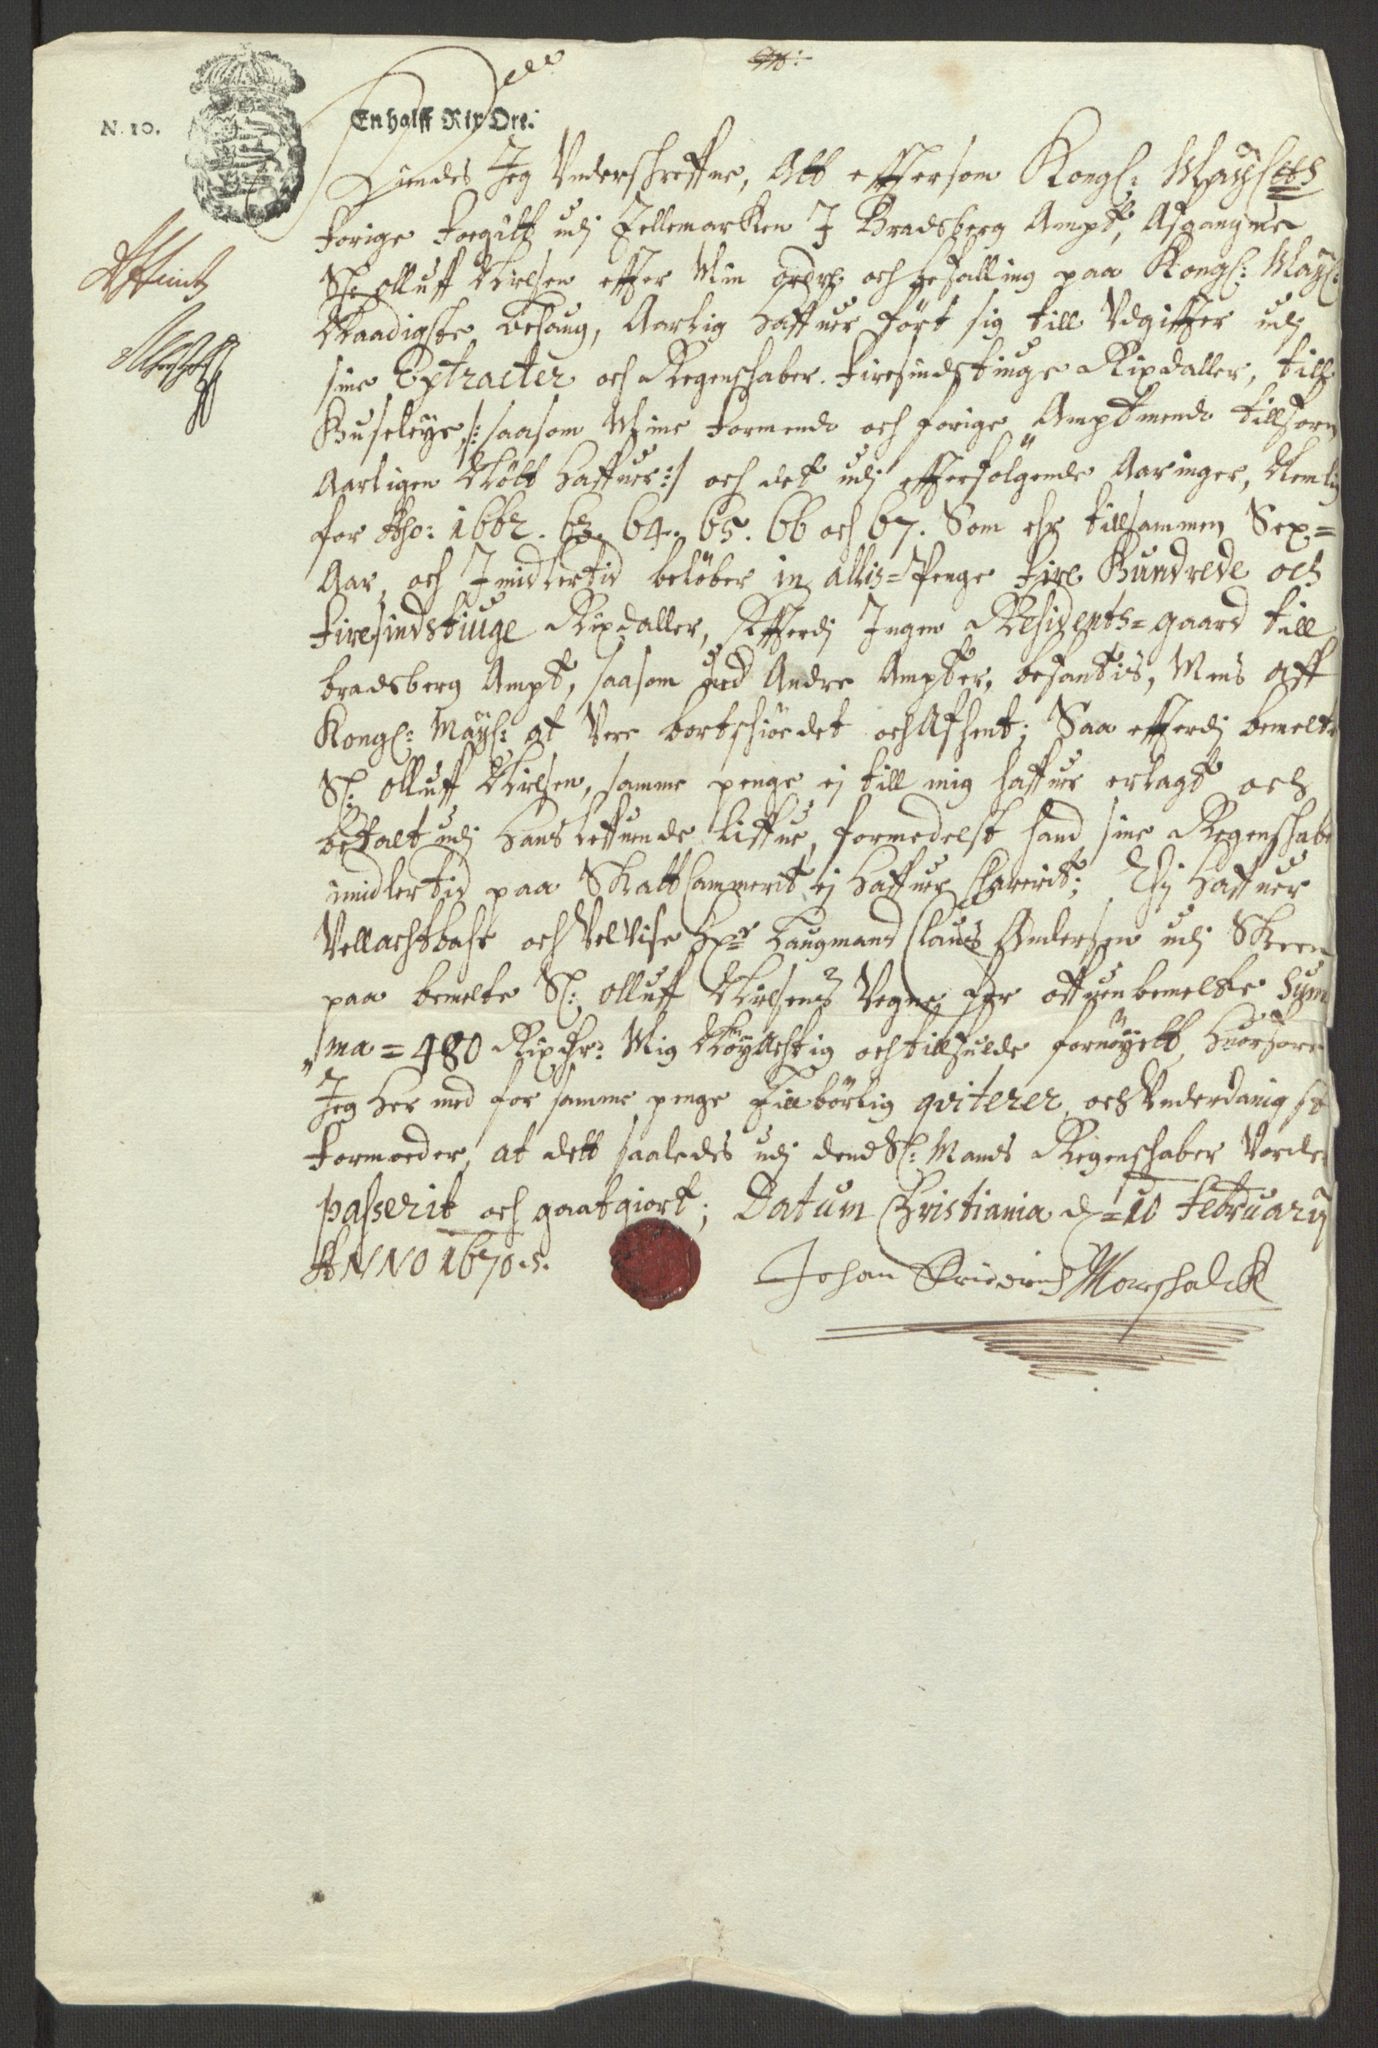 N. 10.
En halff Rix Ort.
Kiendes Jeg Underschreffne, Att effter som Kongl: Mayestts
forige Foegitt udj Tellemarken J Bradsberg Ampt, Afgangne
Sl: olluff Nielsen effter Min ordre och befalling paa Kongl: Mayts:
Naadigste behaug, Aarlig haffuer ført sig till Udgiffter udj
sine Extracter och Regenschaber. Firesindstiuge Rixdaller, till
Huseleye /: saasom Mine Formend och forige Amptmend tillforn
Aarligen Nött haffuer :/ och det udj effterfölgende Aaringer, Nemlig
for Aho: 1662. 63. 64. 65. 66 och 67. Som ehr tillsammen Sex=
Aar, och Jmidlertid belöber in allis=Penge Fire Hundrede och
Firesindstiuge Rixdaller, Efferdj Ingen Residents=gaard till
bradsberg Ampt, saasom ued Andre Ampter, befantis, Mens aff
Kongl: Mayts: at Vere bortschiödet och Afhent; Saa efferdj bemelte
Sl: olluff Nielsen, samme penge ej till mig haffuer erlagt och
betalt udj Hans leffuende Liffue, formedelst hand sine Regenschaber
imidlertid paa SkattCammerit ej haffuer Clarerit; Thj haffuer
Vellachtbahr och VelVise Hr Laugmand Claus Andersen udj Skeen
paa bemelte Sl: olluff Nielsens Vegne for offuenbemelte Sum
ma = 480 Rixdr: Mig Nöyachtig och tillfulde fornöyett, huorfore
Jeg her med for samme penge Tillbörlig qviterer, och Underdanigst
Formoeder, at dett saaledes udj dend Sl: Mands Regenschaber Vorder
passerit och gaatgiort; Datum Christiania d: 10 Februarij
ANNO 1670.
Johan Friedrich Marschalck